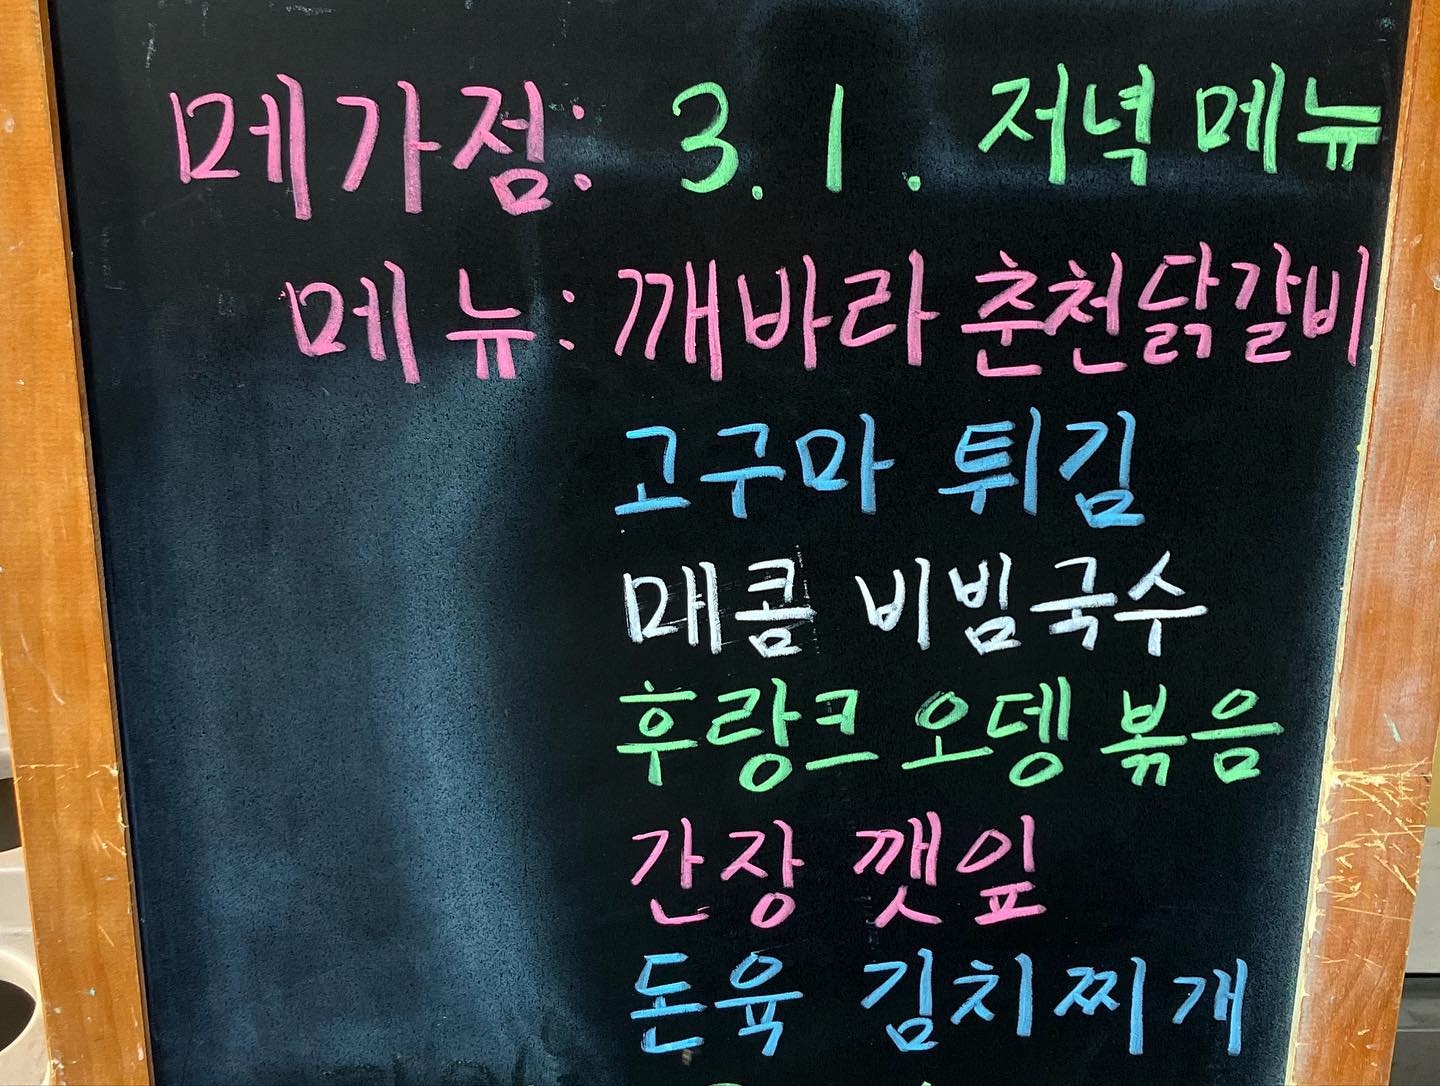 메가점: 3. 1. 저녁 메뉴
메뉴: 깨바라 춘천닭갈비
고구마 튀김
매콤 비빔국수
후랑크 오뎅 볶음
간장 깻잎
돈육 김치찌개